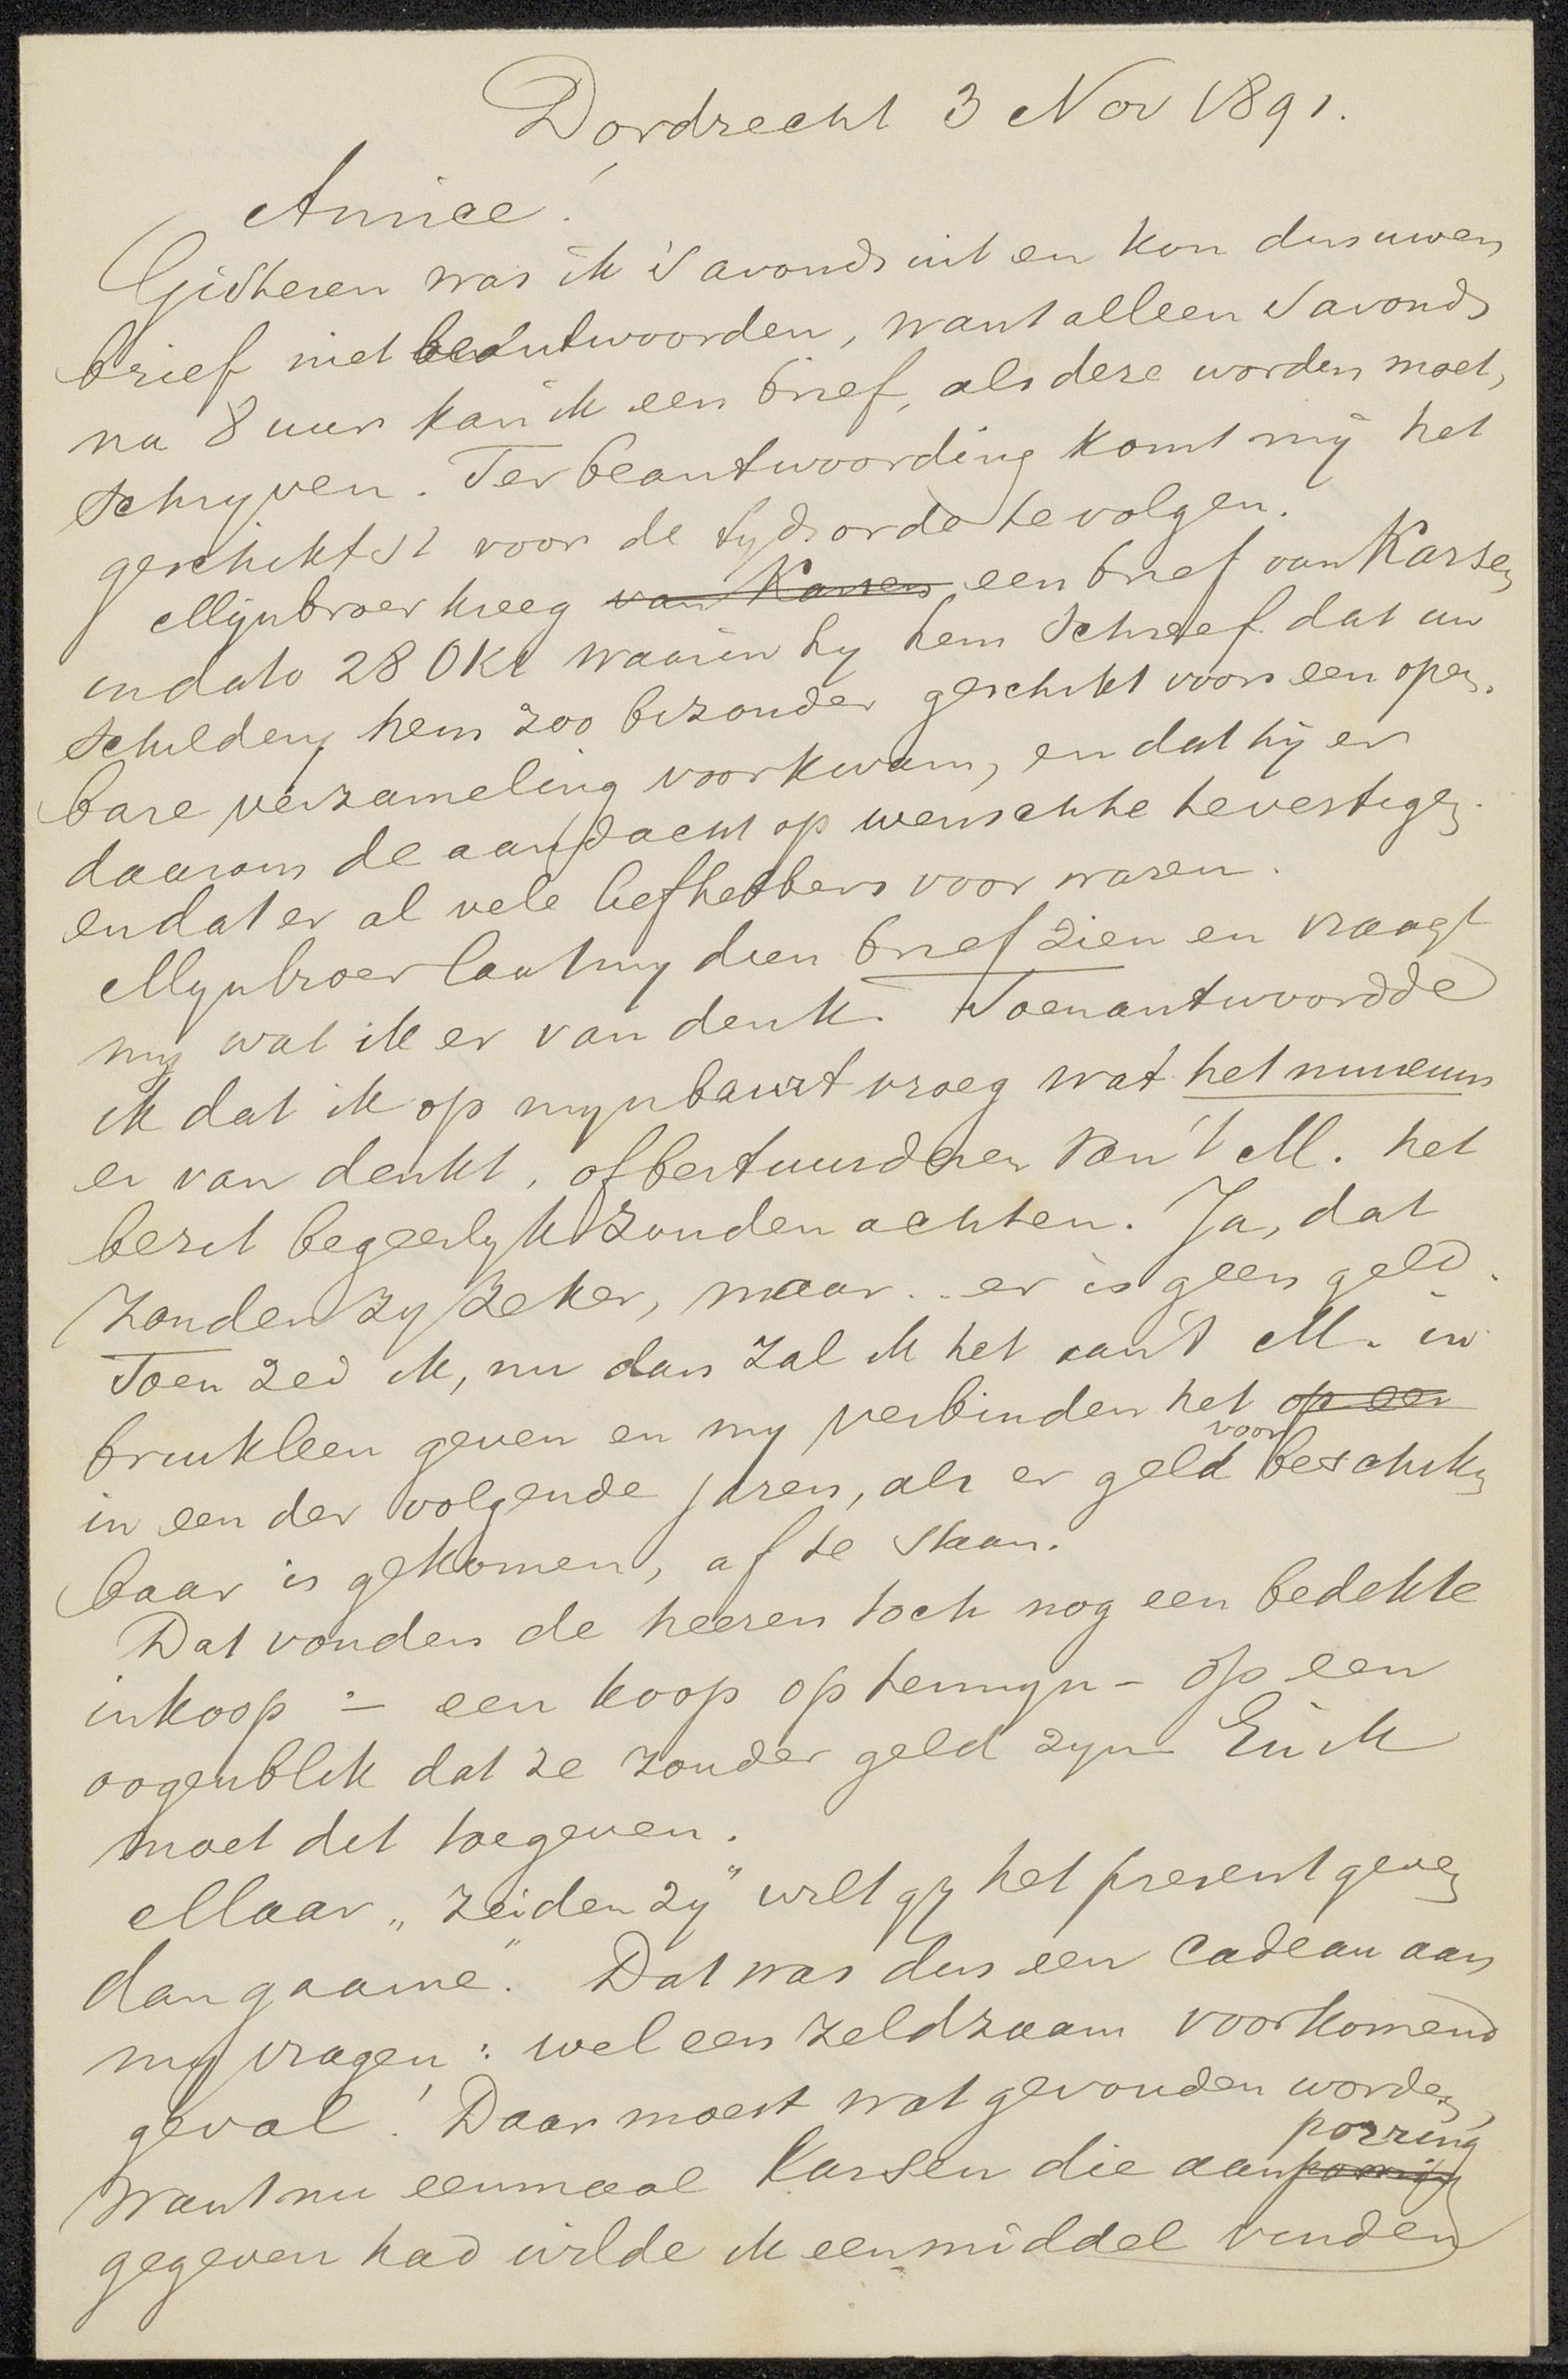 Dordrecht 3 Nov 1891.
Amice!
Gisteren was ik 's avonds uit en kon dus uwen
brief niet beantwoorden, want alleen 's avonds
na 8 uur kan ik een brief, als deze worden moet,
schryven. Ter beantwoording komt mij het
geschiktst voor de tydsorde te volgen.
Mijn broer kreeg van Karsen een brief van Karsen
in dato 28 Okt waarin hy hem schreef dat uw
schildery hem zoo bizonder geschikt voor een open-
bare verzameling voorkwam, en dat hij er
daarom de aandacht op wenschte te vestigen.
en dat er al vele liefhebbers voor waren.
Myn broer laat my dien brief zien en vraagt
my wat ik er van denk. Toen antwoordde
ik dat ik op myn baurt vroeg wat het museum
er van denkt, of bestuurderen van 't M. het
bezit begeerlyk zouden achten. Ja, dat
zouden zy zeker, maar .. er is geen geld.
Toen zei ik, nu dan zal ik het aan 't M. in
bruikleen geven en my verbinden het op een
in een der volgende jaren, als er geld voor beschik
baar is gekomen, af te staan.
Dat vonden de heeren toch nog een bedekte
inkoop :- een koop op termyn - op een
oogenblik dat ze zonder geld zyn. En ik
moet dit toegeven.
Maar „zeiden zy" wilt gy het present geven
dan gaarne". Dat was dus een cadeau aan
my vragen: wel een zeldzaam voorkomend
geval! Daar moest wat gevonden worden,
porring
want nu eenmaal Karsen die aanporring
gegeven had wilde ik een middel vinden